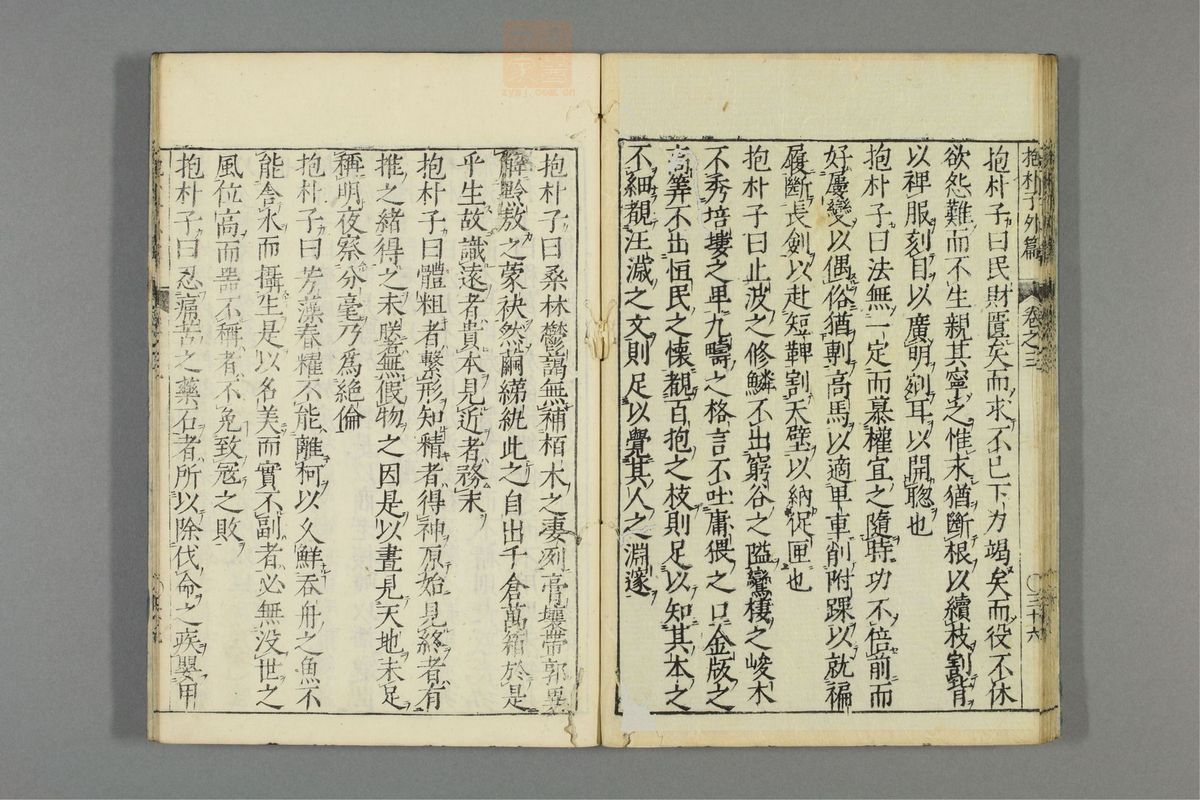 抱朴子外篇 卷之三 〇三十六
抱朴子曰民財匱矣而求不已下力竭矣而役不休
欲怨難而不生親其寧之惟求猶斷根以續枝割背
以裨服刻目以廣明剜耳以開聦也
抱朴子曰法無一定而慕權宜之隨時功不倍前而
好屢變以偶俗猶剸高馬以適卑車削附踝以就褊
履斷長劍以赴短鞞割天璧以納促匣也
抱朴子曰止波之修鱗不出窮谷之隘鸞棲之峻木
不秀培塿之卑九疇之格言不吐庸猥之口金版之
高筭不出恒民之懐覩百抱之枝則足以知其本之
不細覩汪濊之文則足以覺其人之淵邃
抱朴子曰桑林鬱藹無補栢木之凄冽膏壤帶郭無
解黔敖之蒙袂然繭綈紈此之自出千倉萬箱於是
乎生故識遠者貴本見近者務末
抱朴子曰體粗者繫形知精者得神原始見終者有
推之緒得之未朕無假物之因是以晝見天地未足
稱明夜察分毫乃為絶倫
抱朴子曰芳藻春耀不能離柯以久鮮吞舟之魚不
能舎水而攝生是以名美而實不副者必無没世之
風位高而噐不稱者不免致寇之敗
抱朴子曰忍痛苦之藥石者所以除伐命之疾嬰甲
zysj.com.cn